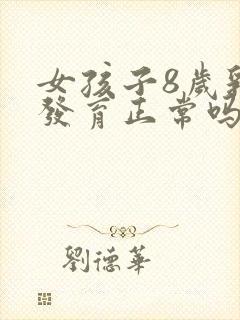 女孩子8歲
發育正常嗎
劉德華